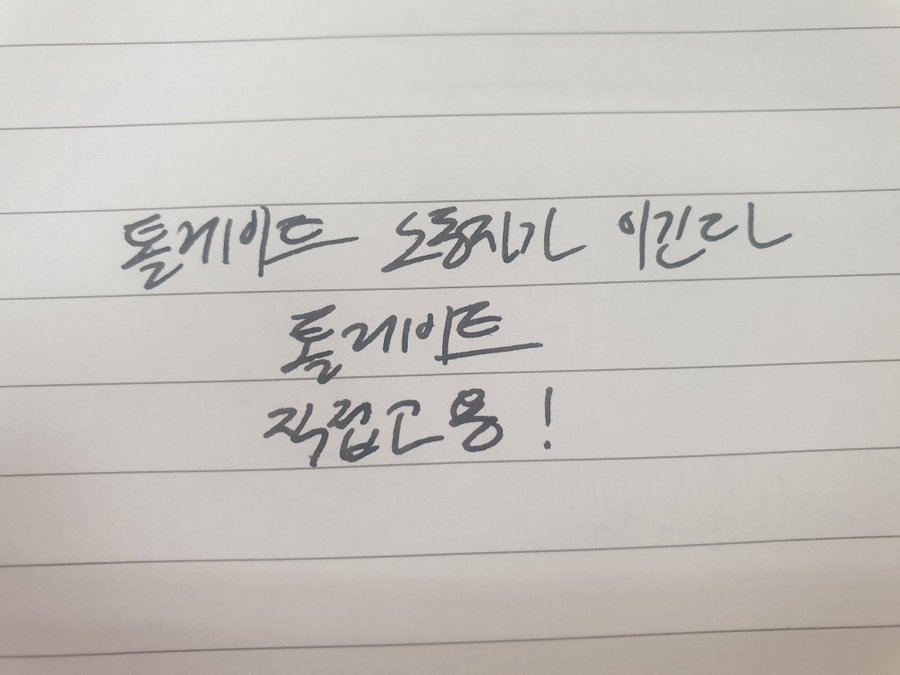 톨게이트 노동자가 이긴다
톨게이트
직접고용!